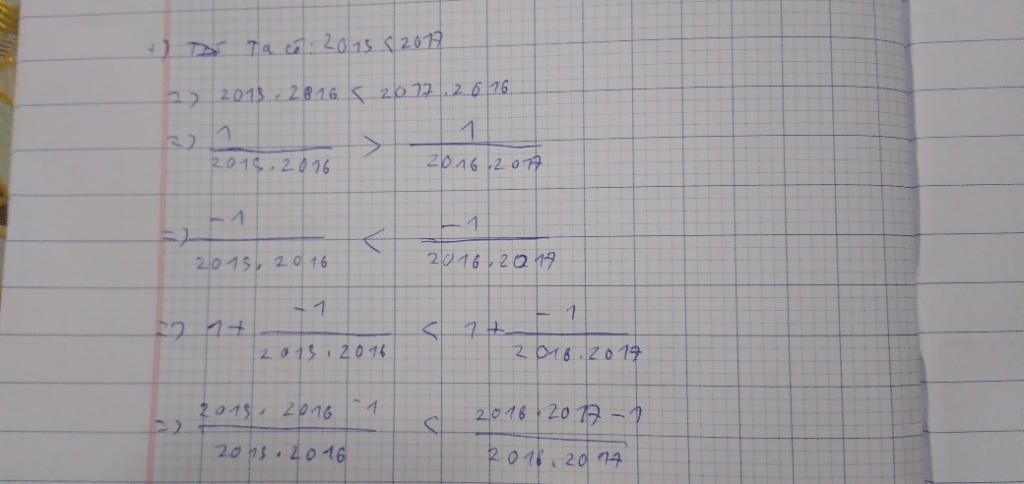 +) Ta có: 2015 < 2017
=> 2015.2016 < 2017.2016
=> 1/2015.2016 > 1/2016.2017
=> -1/2015.2016 < -1/2016.2017
=> 1+ -1/2015.2016 < 1+ -1/2016.2017
=> 2015.2016-1/2015.2016 < 2016.2017-1/2016.2017